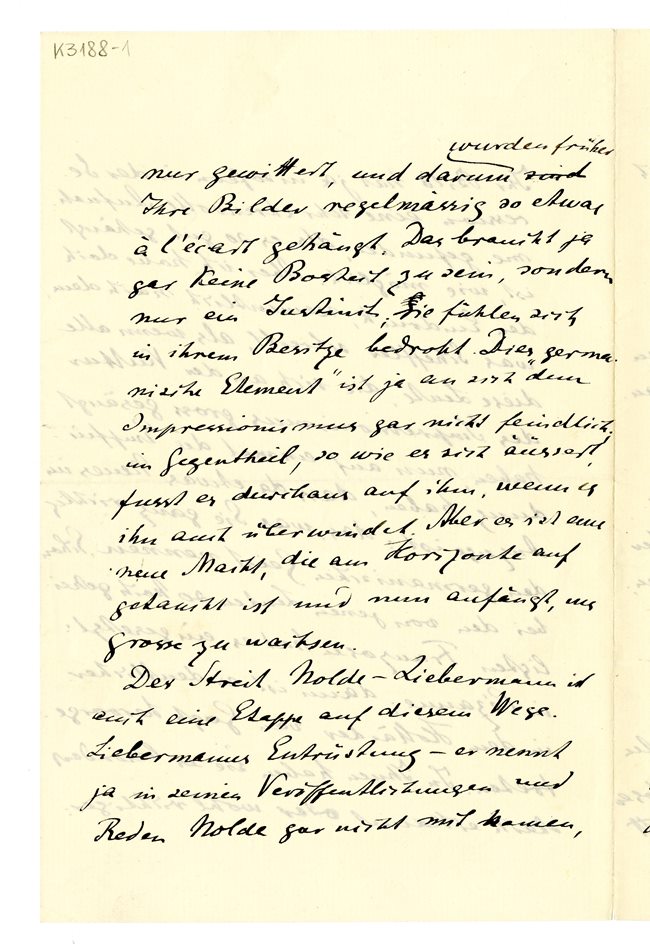 K3188-1
wurden früher
nur gewittert, und darum sind
Ihre Bilder regelmässig so etwas
à l'écart gehängt. Das braucht ja
gar keine Bosheit zu sein, sondern
nur ein Instinct, sie fühlen sich
in ihrem Besitze bedroht. Dies „germa-
nische Element" ist ja an sich dem
Impressionismus gar nicht feindlich,
im Gegentheil, so wie es sich äussert,
fusst es durchaus auf ihm, wenn es
ihn auch überwindet. Aber es ist eine
neue Macht, die am Horizonte auf
getaucht ist und nun anfängt, ins
grosse zu wachsen.
Der Streit Nolde – Liebermann ist
auch eine Etappe auf diesem Wege.
Liebermanns Entrüstung – er nennt
ja in seinen Veröffentlichungen und
Reden Nolde gar nicht mit Namen,